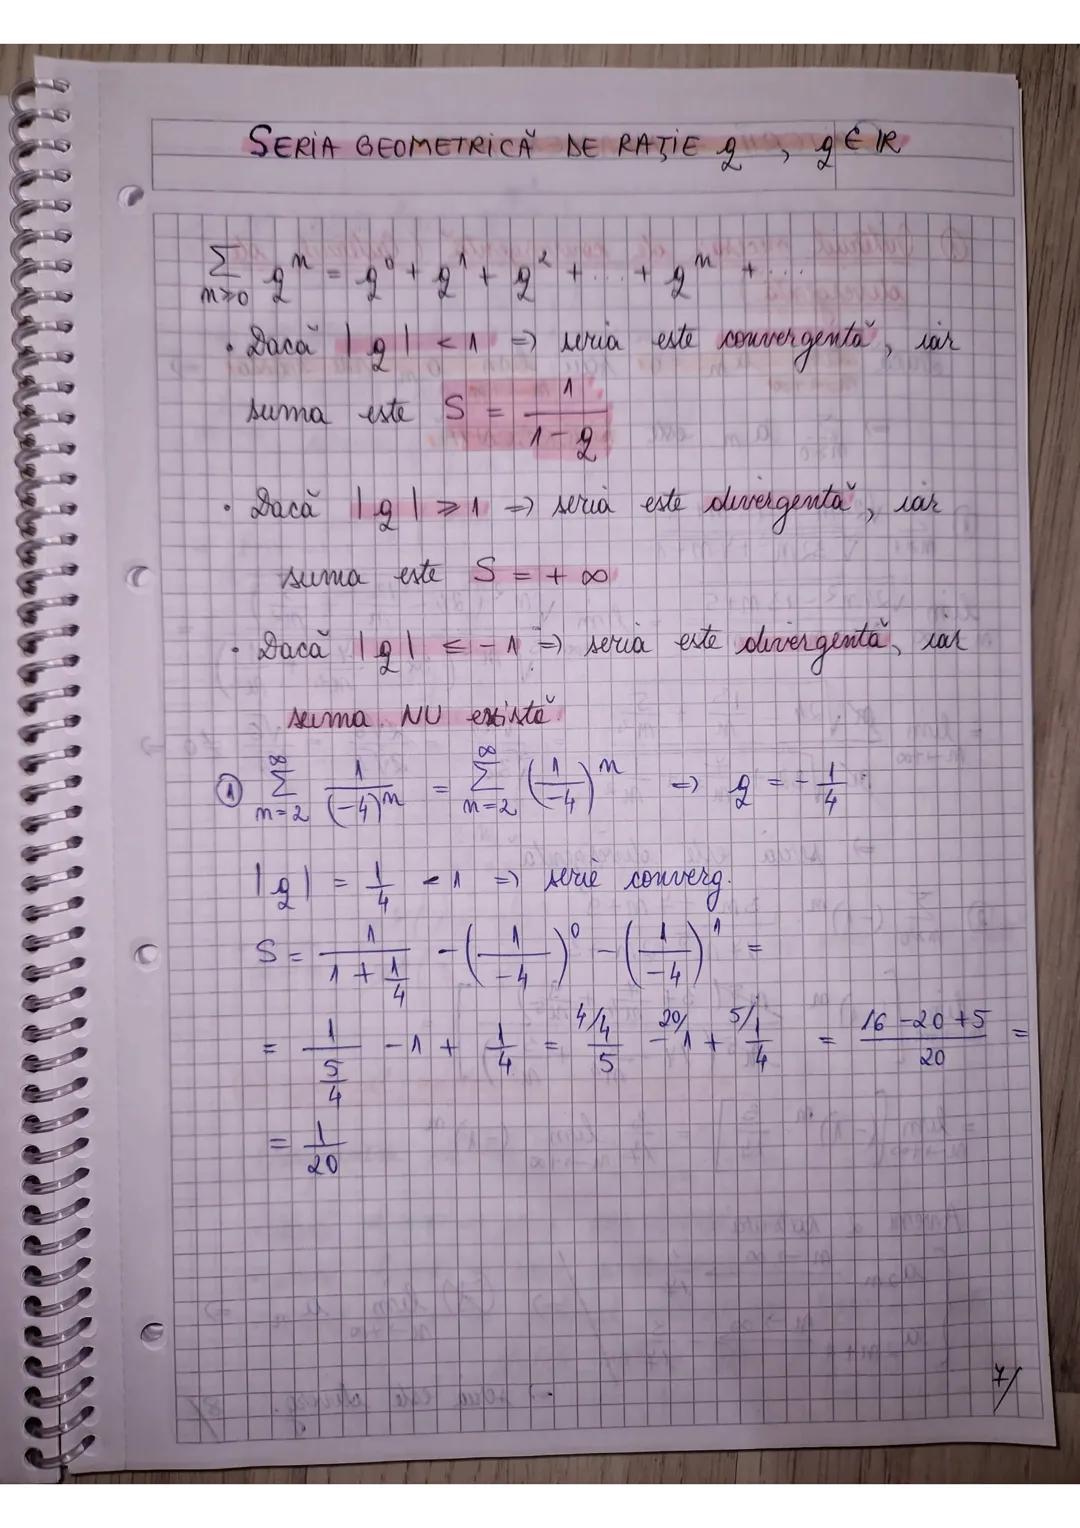 SERIA GEOMETRICĂ DE RAȚIE q , q ∈ ℝ
∑_{n≥0} q^n = q^0 + q^1 + q^2 + ... + q^n + ...
• Dacă |q| < 1 => seria este convergentă, iar
suma este S = 1/(1-q)
• Dacă |q| ≥ 1 => seria este divergentă, iar
suma este S = +∞
• Dacă |q| ≤ -1 => seria este divergentă, iar
suma NU există
① ∑_{n=2}^{∞} 1/(-4)^n = ∑_{n=2}^{∞} (1/-4)^n => q = -1/4
|q| = 1/4 < 1 => serie converg.
S = 1/(1+1/4) - (1/-4)^0 - (1/-4)^1 =
= 1/(5/4) - 1 + 1/4 = ⁴⁾4/5 - ²⁰⁾1 + ⁵⁾1/4 = (16-20+5)/20 =
= 1/20
7/